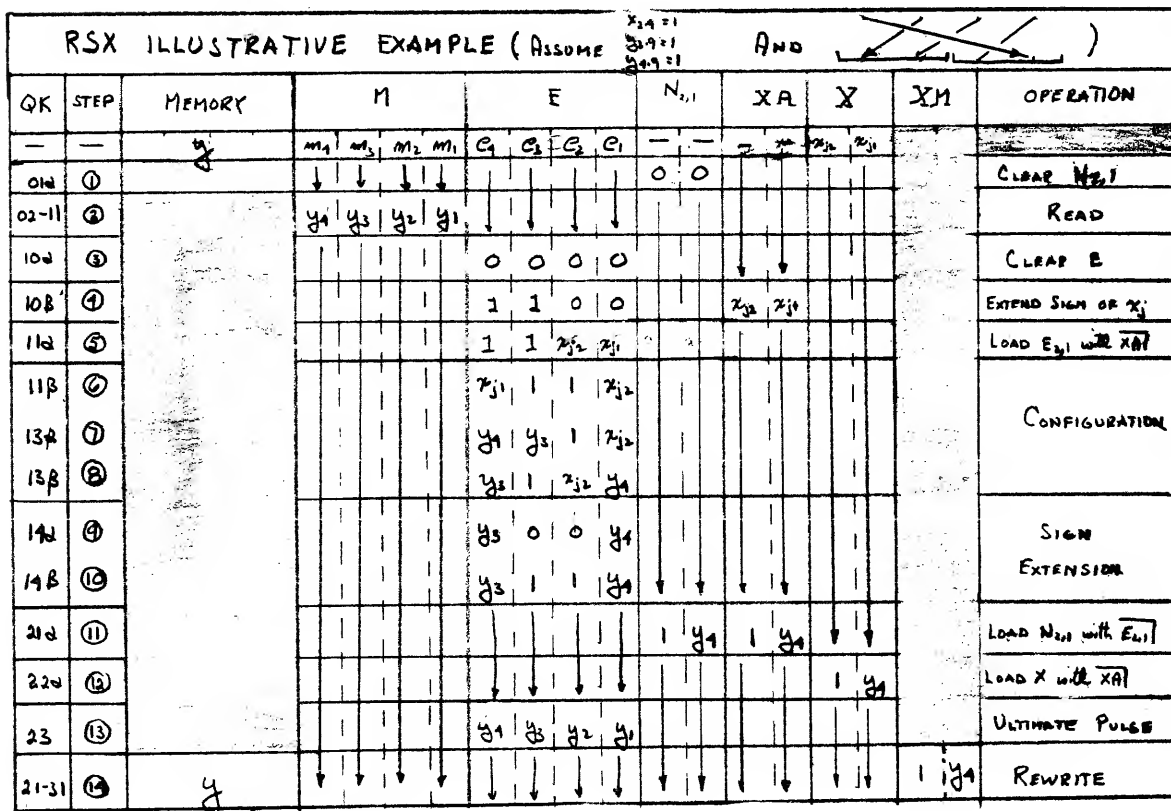 RSX ILLUSTRATIVE EXAMPLE (ASSUME y4.9=1 AND )
QK STEP MEMORY M E N2,1 XA X XM OPERATION
— — y m4 m3 m2 m1 e4 e3 e2 e1 — — — — xj2 xj1
01α ① 0 0 CLEAR N2,1
02-11 ② y4 y3 y2 y1 READ
10α ③ 0 0 0 0 CLEAR E
10β ④ 1 1 0 0 xj2 xj1 EXTEND SIGN OF xj
11α ⑤ 1 1 xj2 xj1 LOAD E2,1 with XA
11β ⑥ xj1 1 1 xj2
CONFIGURATION
13α ⑦ y4 y3 1 xj2
13β ⑧ y3 1 xj2 y4
14α ⑨ y3 0 0 y4 SIGN
14β ⑩ y3 1 1 y4 EXTENSION
21α ⑪ 1 y4 1 y4 LOAD N2,1 with E2,1
22α ⑫ 1 y4 LOAD X with XA
23 ⑬ y4 y3 y2 y1 ULTIMATE PULSE
21-31 ⑭ y 1 y4 REWRITE